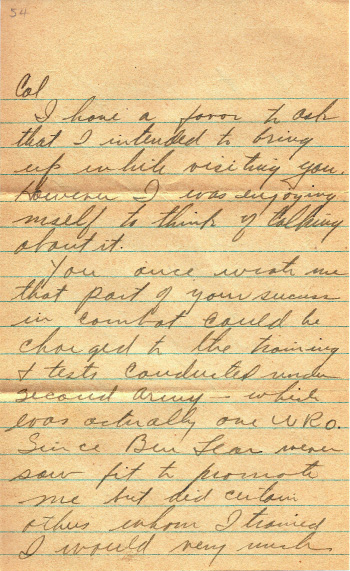 54
Col
I have a favor to ask
that I intended to bring
up while visiting you.
However I was enjoying
myself to think of talking
about it.
You once wrote me
that part of your success
in combat could be
charged to the training
& tests conducted under
Second Army - which
was actually one WRO.
Since Ben Lear never
saw fit to promote
me but did certain
others whom I trained
I would very much